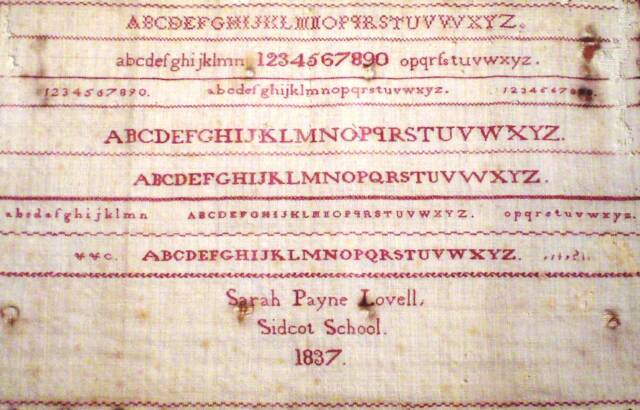 ABCDEFGHIJKLMNOPQRSTUVWXYZ.
abcdefghijklmn 1234567890 opqrſstuvwxyz.
1234567890. abcdefghijklmnopqrstuvwxyz. 1234567890.
ABCDEFGHIJKLMNOPQRSTUVWXYZ.
ABCDEFGHIJKLMNOPQRSTUVWXYZ.
abcdefghijklmn ABCDEFGHIJKLMNOPQRSTUVWXYZ. opqrstuvwxyz.
&c. ABCDEFGHIJKLMNOPQRSTUVWXYZ.
Sarah Payne Lovell,
Sidcot School.
1837.